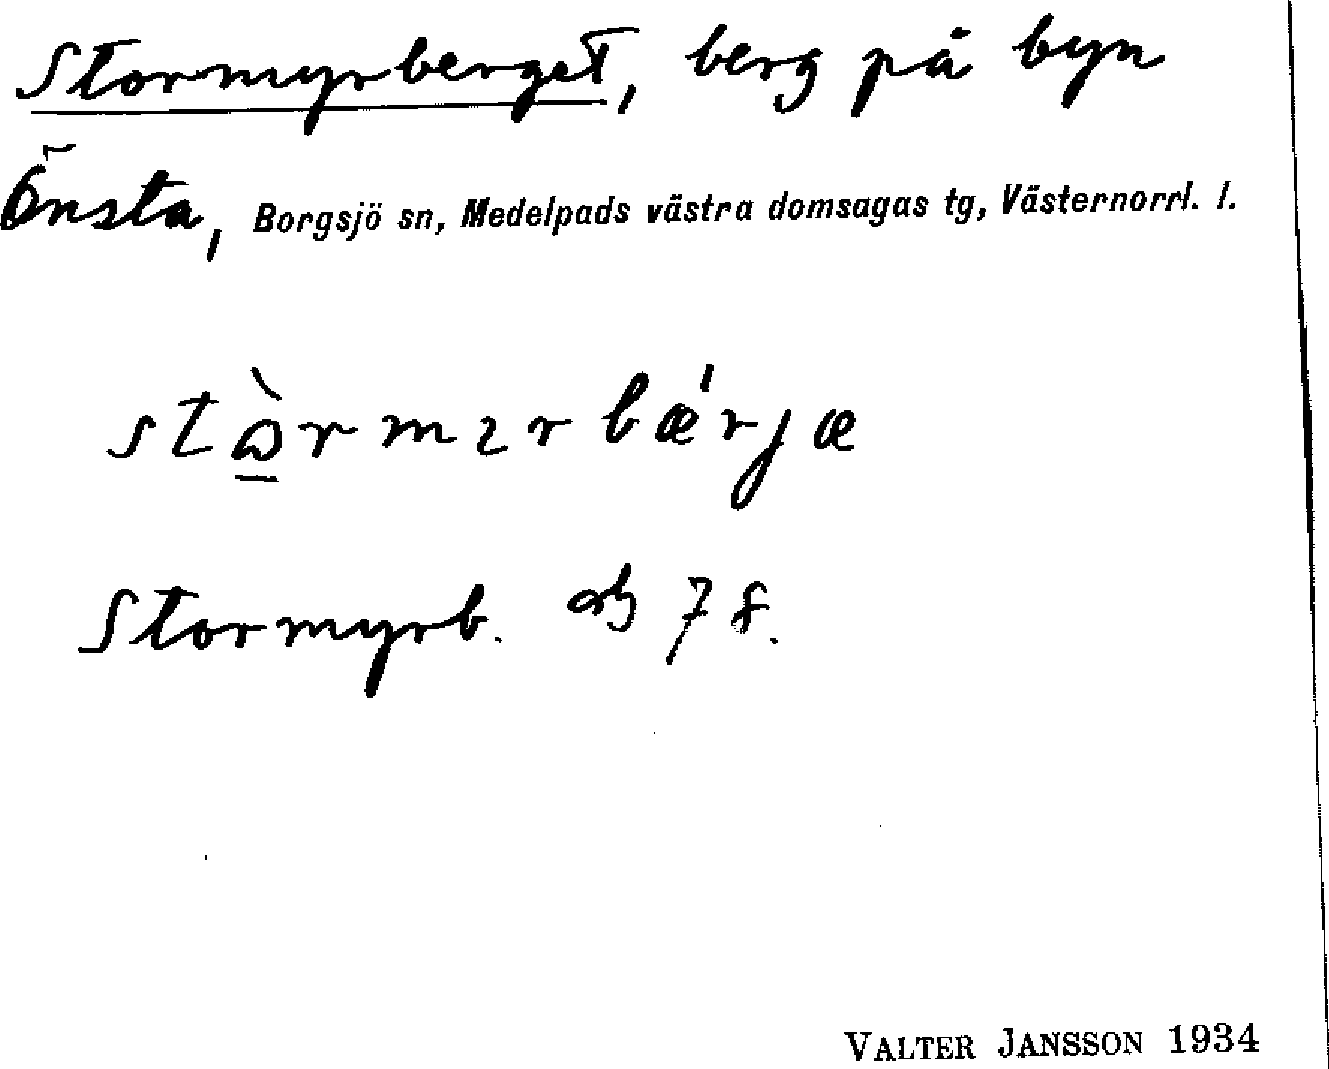 Stormyrberget, berg på byn
Önsta, Borgsjö sn, Medelpads västra domsagas tg, Västernorrl. l.
stɷ̱̀rmɿrbǽrjæ
Stormyrb. ab 78.
VALTER JANSSON 1934